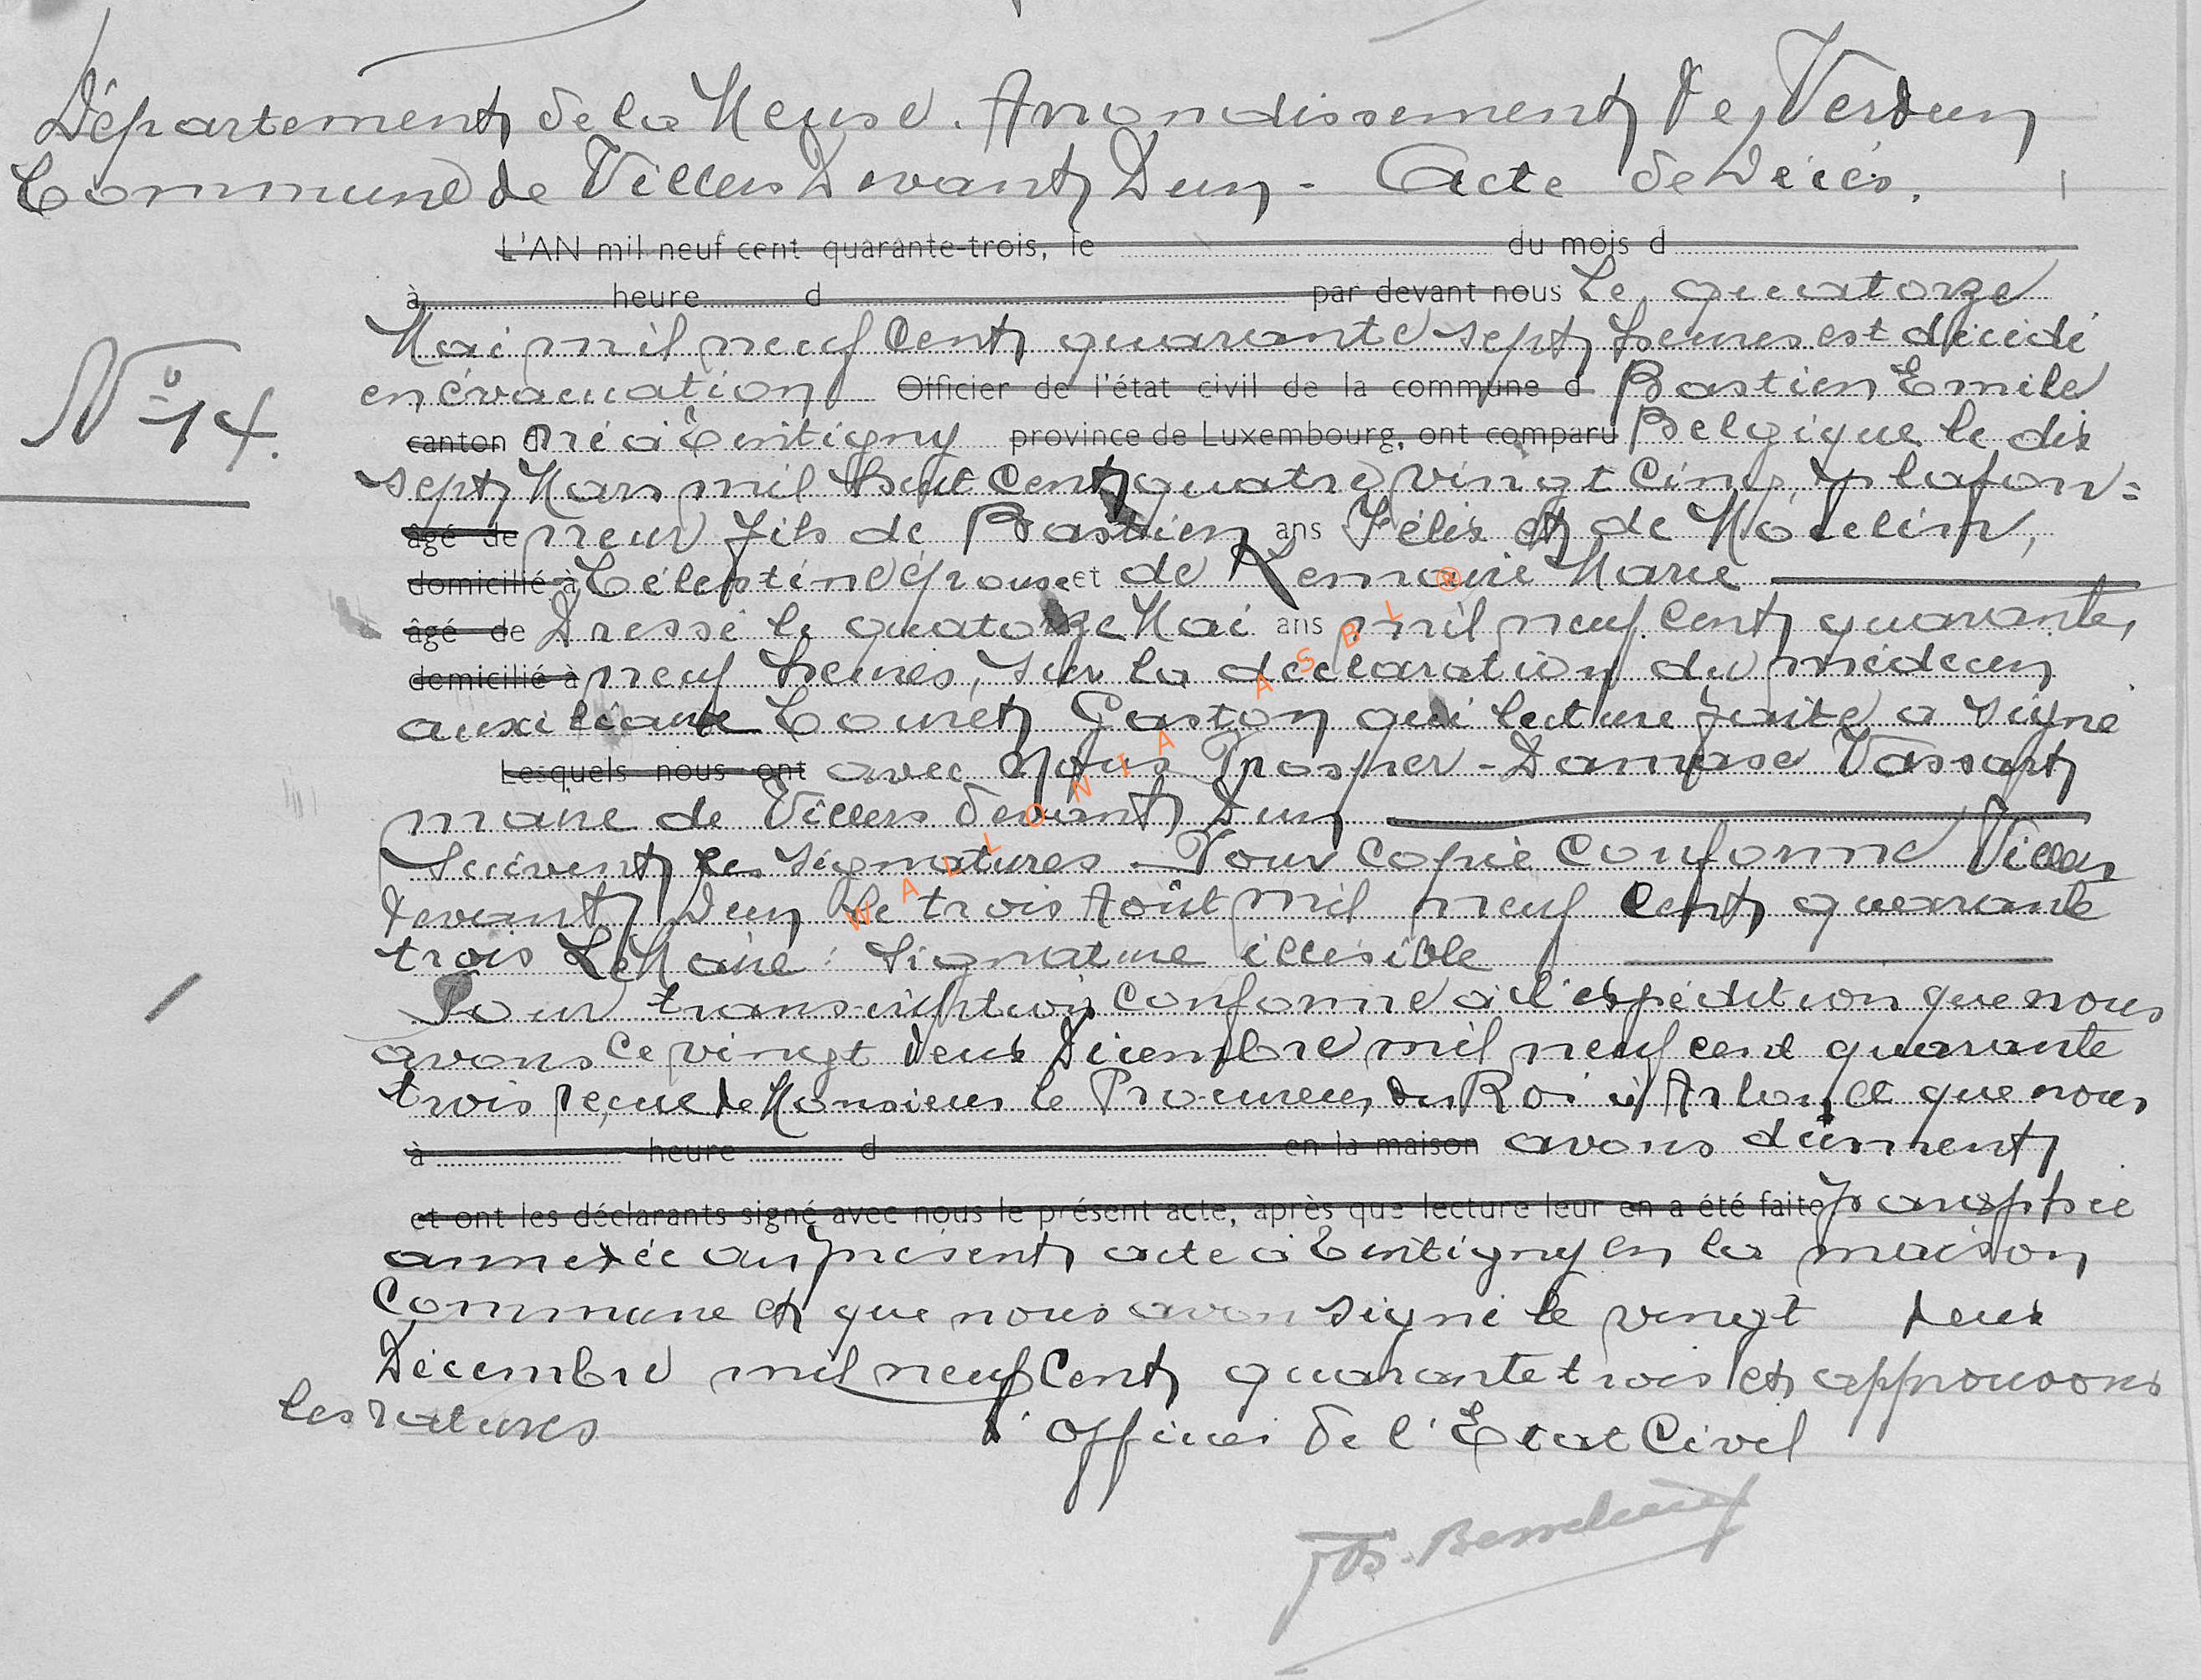 Département de la Meuse. Arrondissement de Verdun
Commune de Villers Devant Dun - Acte de Décès.
L'AN mil neuf cent quarante-trois, le du mois d
à heure d par devant nous Le quatorze
Mai mil neuf cent quarante sept heures est décédé
en évacuation Officier de l'état civil de la commune d Bastien Emile
N° 14.
canton d né à Tintigny province de Luxembourg, ont comparu Belgique le dix
sept Mars mil huit cent quatre vingt cinq, plafon=
âgé de neur fils de Bastien ans Félix et de
domicilié à Célestine épouse et de Marie
âgé de Dressé le quatorze Mai ans mil neuf cent quarante,
domicilié à neuf heures, sur la déclaration du médecin
auxiliaire Gaston qui lecture faite a signé
Lesquels nous ont avec Nous Prosper - Damase Vassart
maire de Villers devant Dun
Suivent les signatures - Pour copie conforme Villers
devant Dun le trois Août mil neuf cent quarante
trois Le Maire : Signature illisible
Pour transcription conforme à l'expédition que nous
avons ce vingt deux Décembre mil neuf cent quarante
trois reçue de Monsieur le Procureur du Roi à Arlon et que nous
à heure d en la maison avons dûment
et ont les déclarants signé avec nous le présent acte, après que lecture leur en a été faite paraphée
annexée au présent acte à Tintigny en la maison
Commune et que nous avon signé le vingt deux
Décembre mil neuf cent quarante trois et approuvons
les ratures L'officier de l'Etat Civil
WALLONIA ASBL ®